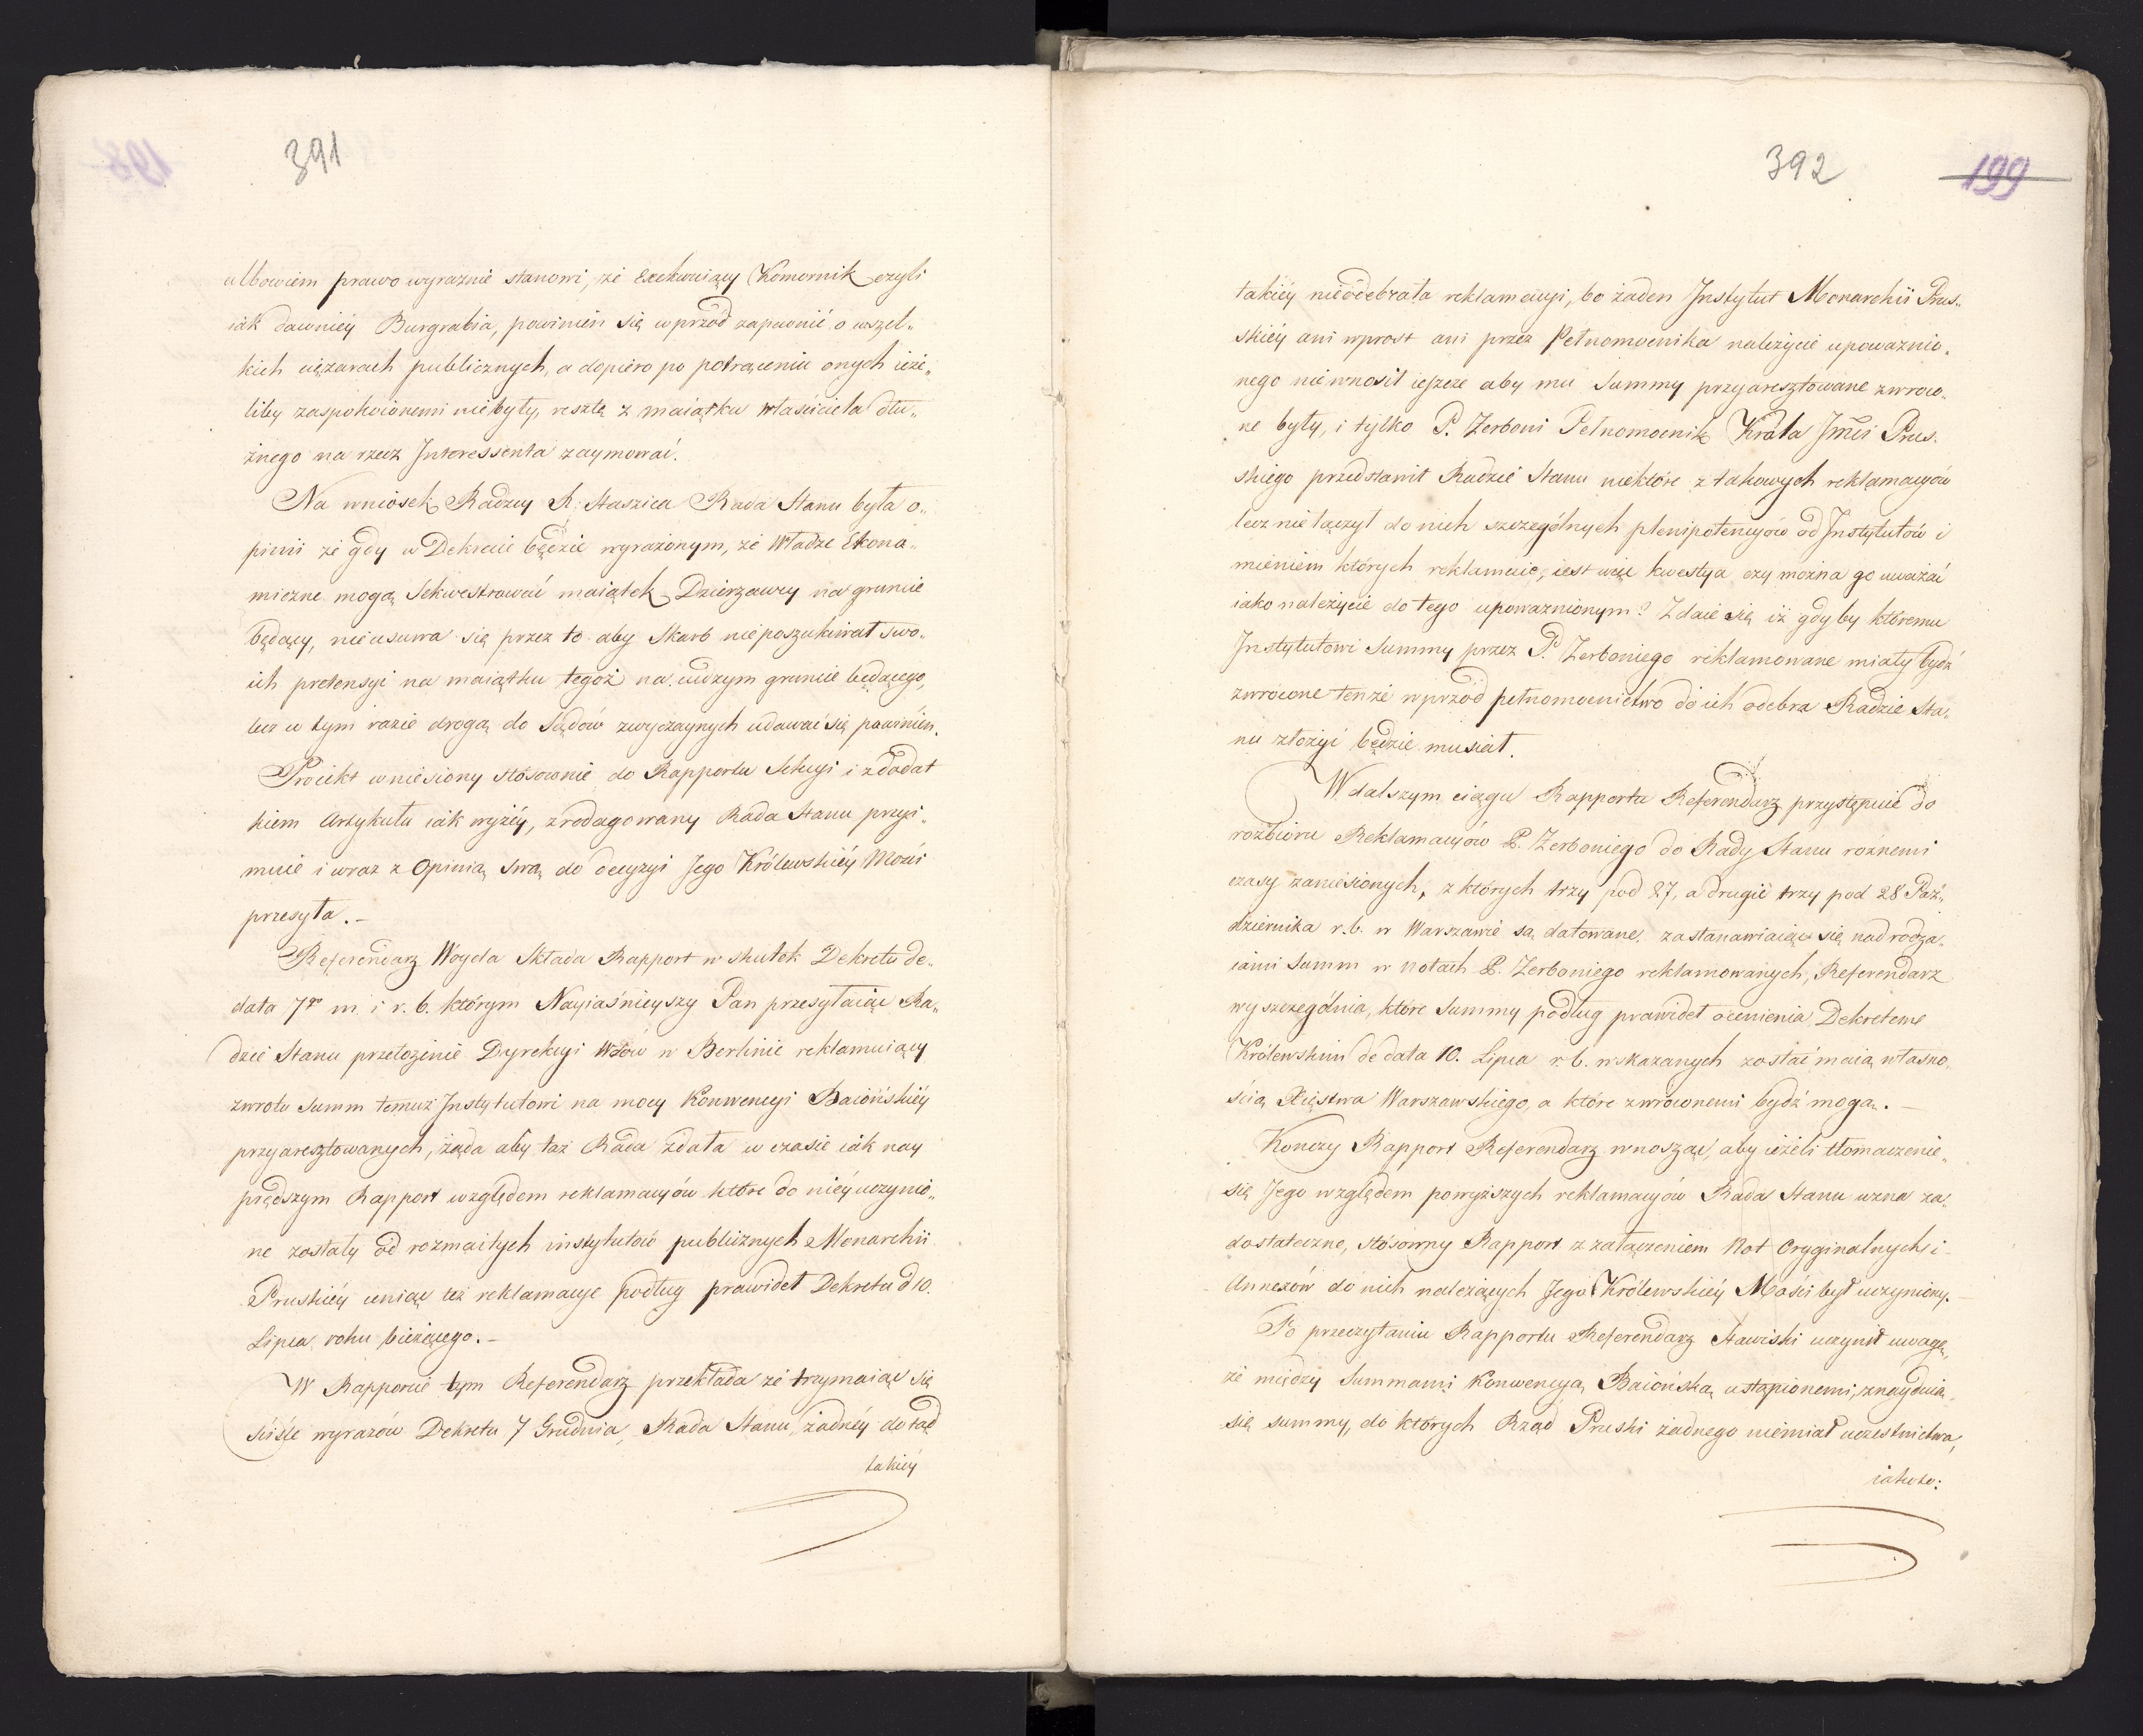 391
albowiem prawo wyraznie stanowi, że Exekwuiący Komornik czyli
iak dawniéy Burgrabia, powinien się wprzód zapewnić o wszel„
kich ciężarach publicznych, a dopiero po potrąceniu onych ieże„
liby zaspokoionemi niebyły, resztę z maiątku właściciela dłu„
żnego na rzecz Interessenta zaymować.
Na wniosek Radzcy St. Staszica Rada Stanu była o„
pinii że gdy w Dekrecie będzie wyrażonym, że Władze Ekono„
miczne mogą Sekwestrować maiątek Dzierzawcy na gruncie
będący, nieusuwa się przez to aby Skarb nieposzukiwał swo„
ich pretensyi na maiątku tegoż na cudzym gruncie będącego,
lecz w tym razie drogą do Sądów zwyczaynych udawać się powinien.
Proiekt wniesiony stósownie do Rapportu Sekcyi i z dodat
kiem Artykułu iak wyżéy, zredagowany Rada Stanu przyi„
muie i wraz z Opinią swą do decyzyi Jego Królewskiéy Mości
przesyła.–
Referendarz Woyda Składa Rapport w skutek Dekretu de„
data 7go m. i r. b. którym Nayiaśnieyszy Pan przesyłaiąc Ra„
dzie Stanu przełożenie Dyrekcyi Wdów w Berlinie reklamuiący
zwrotu Summ temuż Instytutowi na mocy Konwencyi Baiońskiéy
przyaresztowanych, żąda aby taż Rada zdała w czasie iak nay
prędszym Rapport względem reklamacyów które do niéy uczynio„
ne zostały od rozmaitych instytutów publicznych Monarchii
Pruskiéy ceniąc też reklamacye podług prawideł Dekretu d 10.
Lipca roku bieżącego.–
W Rapporcie tym Referendarz przekłada że trzymaiąc się
ściśle wyrazów Dekretu 7 Grudnia, Rada Stanu, żadnéy dotąd
takiéy
392
199
takiéy nieodebrała reklamacyi, bo żaden Instytut Monarchii Prus„
skiéy ani wprost ani przez Pełnomocnika należycie upoważnio„
nego niewnosił ieszcze aby mu Summy przyaresztowane zwróco„
ne były, i tylko P. Zerboni Pełnomocnik Króla Jmci Prus„
skiego przedstawił Radzie Stanu niektóre z takowych reklamacyów
lecz niełączył do nich szczególnych plenipotencyów od Instytutów i
mieniem których reklamuie, iest więc kwestya czy można go uważać
iako należycie do tego upoważnionym? Zdaie się iż gdyby któremu
Instytutowi Summy przez P. Zerboniego reklamowane miały bydź
zwrócone tenże wprzód pełnomocnictwo do ich odebra Radzie Sta„
nu złożyć będzie musiał.
W dalszym ciągu Rapportu Referendarz przystępuie do
rozbioru Reklamacyów P. Zerboniego do Rady Stanu roznemi
czasy zaniesionych, z których trzy pod 27, a drugie trzy pod 28 Paź„
dziernika r. b. w Warszawie są datowane. zastanawiaiąc się nad rodza„
iami Summ w notach P. Zerboniego reklamowanych, Referendarz
wyszczególnia, które Summy podług prawideł ocenienia Dekretem
Królewskim de data 10. Lipca r. b. wskazanych zostać maią własno„
ścią Xięstwa Warszawskiego, a które zwróconemi bydź mogą.–
Kończy Rapport Referendarz wnosząc, aby ieżeli tłomaczenie„
się Jego względem powyższych reklamacyów Rada Stanu uzna za„
dostateczne, stósowny Rapport z załączeniem Not Oryginalnych i
Annexów do nich należących Jego Królewskiéy Mości był uczyniony.–
Po przeczytaniu Rapportu Referendarz Stawiski uczynił uwagę,
że między Summami Konwencyą Baiońską ustąpionemi, znayduią
się summy, do których Rząd Pruski żadnego niemiał uczestnictwa,
iakoto: